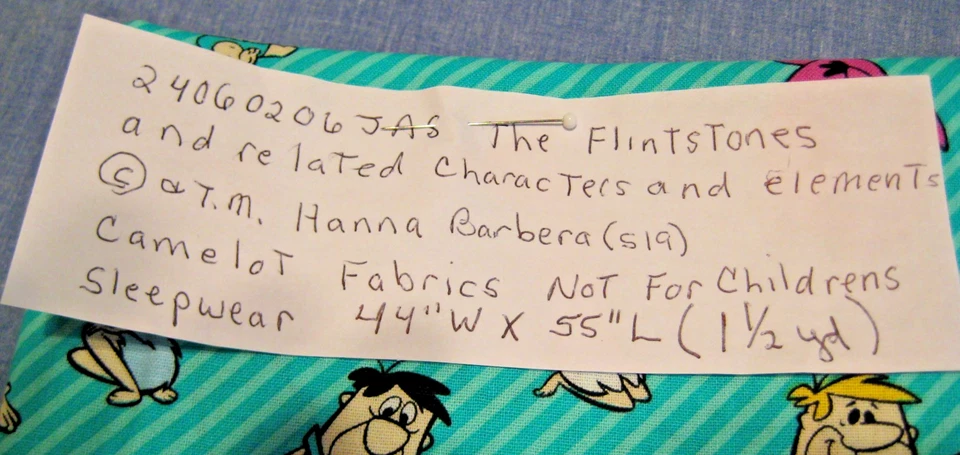 24060206 JAS The FlintsTones
and related CharacTers and elemenTs
© & T.M. Hanna Barbera (s19)
CameloT Fabrics NoT For Childrens
Sleepwear 44"W X 55"L (1 1/2 yd)